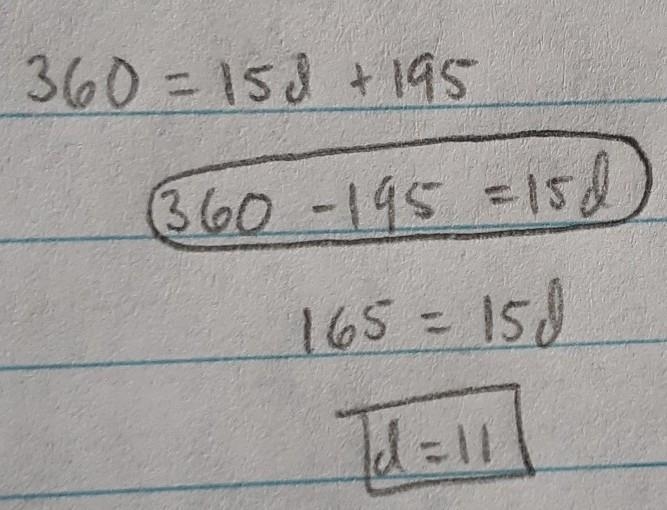 360 = 15d + 195
360 - 195 = 15d
165 = 15d
d = 11